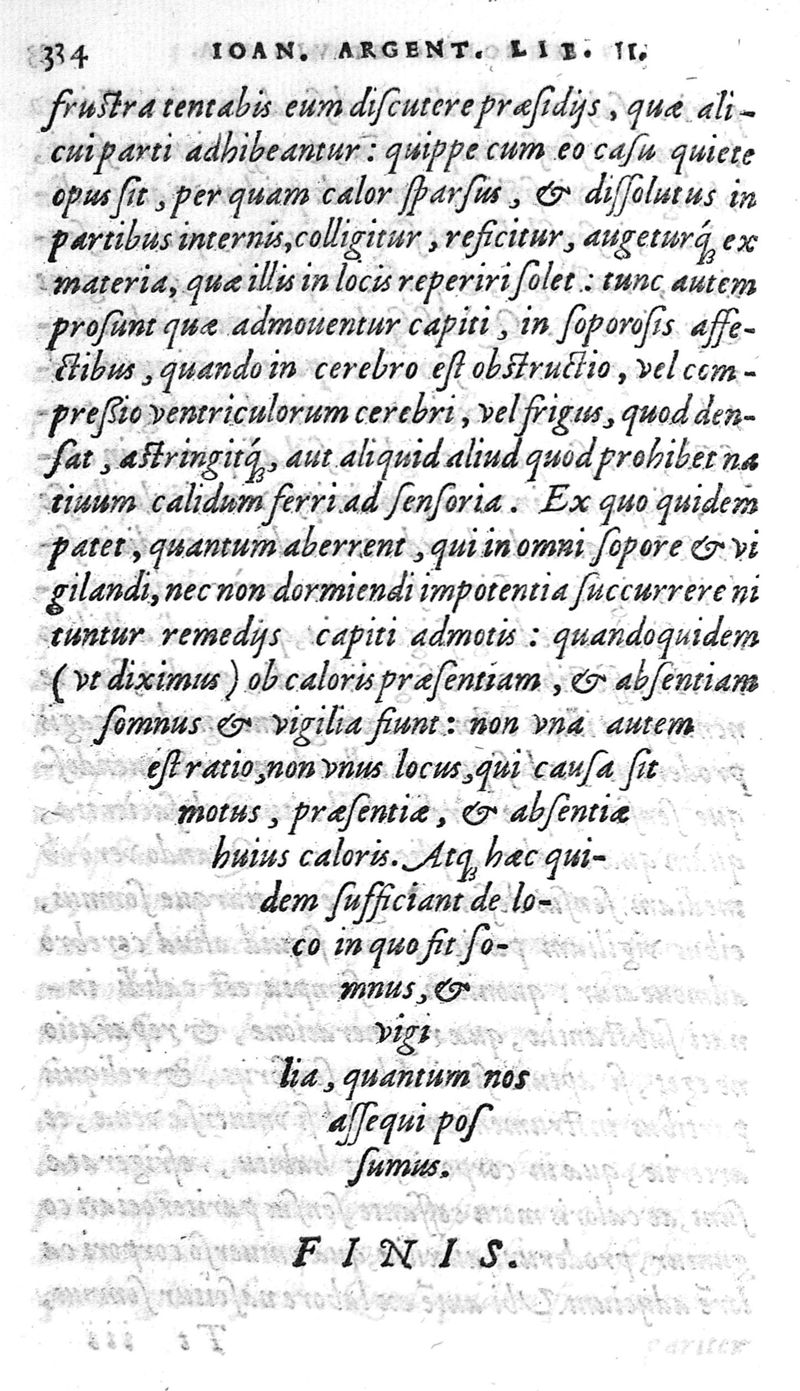 334 IOAN. ARGENT. LIB. II.
fruſtra tentabis eum diſcutere præſidijs, quæ ali-
cui parti adhibeantur: quippe cum eo caſu quiete
opus ſit, per quam calor ſparſus, & diſſolutus in
partibus internis, colligitur, reficitur, augeturq́; ex
materia, quæ illis in locis reperiri ſolet: tunc autem
proſunt quæ admouentur capiti, in ſoporoſis affe-
ctibus, quando in cerebro eſt obſtructio, vel com-
preſsio ventriculorum cerebri, vel frigus, quod den-
ſat, aſtringitq́;, aut aliquid aliud quod prohibet na
tiuum calidum ferri ad ſenſoria. Ex quo quidem
patet, quantum aberrent, qui in omni ſopore & vi
gilandi, nec non dormiendi impotentia ſuccurrere ni
tuntur remedijs capiti admotis: quandoquidem
(vt diximus) ob caloris præſentiam, & abſentiam
ſomnus & vigilia fiunt: non vna autem
eſt ratio, non vnus locus, qui cauſa ſit
motus, præſentiæ, & abſentiæ
huius caloris. Atq; hæc qui-
dem ſufficiant de lo-
co in quo fit ſo-
mnus, &
vigi
lia, quantum nos
aſſequi poſ
ſumus.
FINIS.